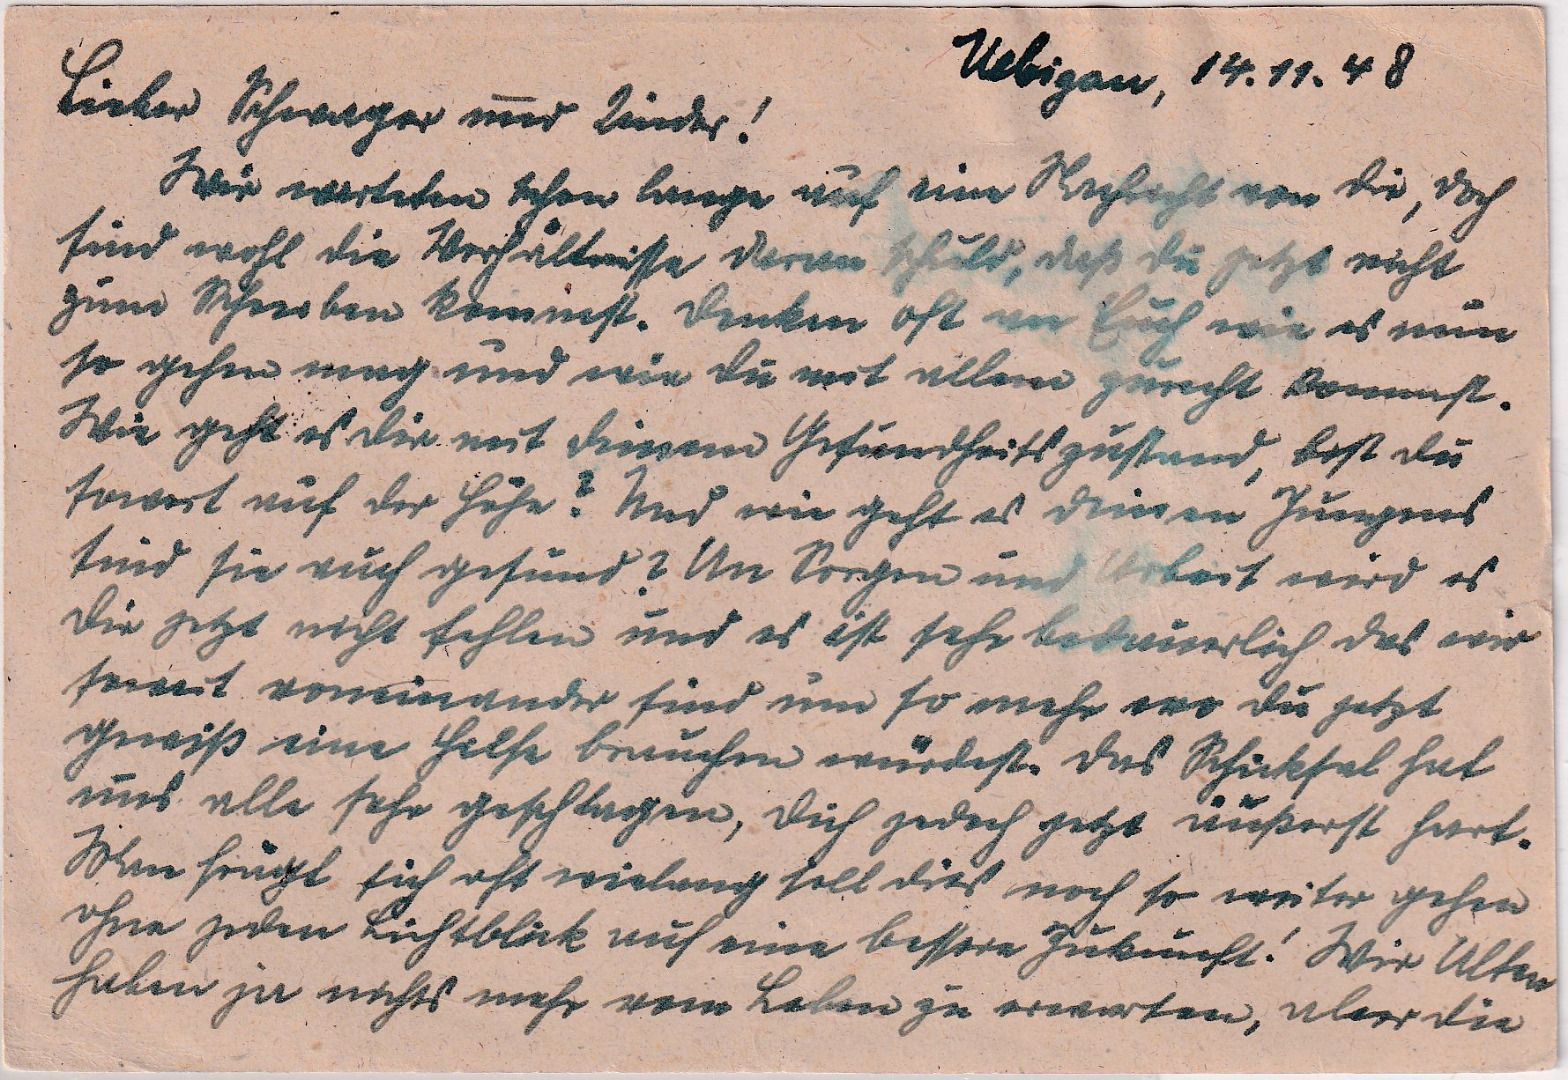 Uebigau, 14.11.48
Lieber Schwager und Kinder!
Wir warteten schon lange auf eine Nachricht von dir, doch
sind wohl die Verhältnisse daran schuld, daß du jetzt nicht
zum Schreiben kommst. Denken oft an Euch wie es nun
so gehen mag und wie du mit allem zurecht kommst.
Wie geht es dir mit deinem Gesundheitszustand, bist du
soweit auf der Höhe? Und wie geht es deinen Jungens
sind sie auch gesund? An Sorgen und Arbeit wird es
dir jetzt nicht fehlen und es ist sehr bedauerlich das wir
soweit voneinander sind um so mehr wo du jetzt
gewiß eine Hilfe brauchen würdest. Das Schicksal hat
uns alle sehr geschlagen, dich jedoch jetzt äußerst hart.
Man frägt sich oft wielang soll dies noch so weiter gehen
ohne jeden Lichtblick auf eine bessere Zukunft! Wir Alten
haben ja nichts mehr vom Leben zu erwarten, aber die